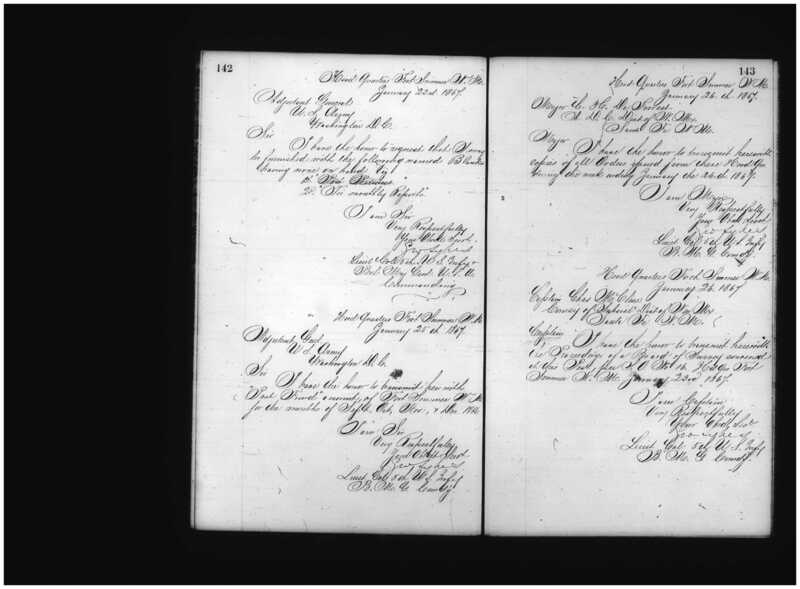 142
Head Quarters Fort Sumner N. M.
January 22d 1867.
Adjutant General
U. S. Army
Washington D. C.
Sir
I have the honor to request that I may
be furnished with the following named Blanks
having none on hand. viz
20 "Tri monthly Reports"
I am Sir
Very Respectfully
Your Obdt Servt.
Geo Sykes
Lieut Col 5th U. S. Infy
Bvt. Maj Genl. U. S. A.
Commanding
Head Quarters Fort Sumner N. M.
January 25th 1867.
Adjutant Genl
U. S. Army
Washington D. C.
Sir
I have the honor to transmit herewith
"Post Fund" accounts, of Fort Sumner N. M.
for the months of Sept. Oct, Nov, & Dec 1866
I am Sir
Very Respectfully
Your Obdt Servt
Geo Sykes
Lieut Col 5th U. S. Infy
B. M. G. Comdg
143
Head Quarters Fort Sumner N. M.
January 26th 1867.
Major C. De Forrest
A. D. C. Dist of N. Mex
Santa Fe N. M.
Major
I have the honor to transmit herewith
copies of all Orders issued from these Head Qrs
during the week ending January the 26th 1867.
I am Major
Very Respectfully
Your Obdt Servt
Geo Sykes
Lieut Col 5th U. S. Infy
B. M. G. Comdg
Head Quarters Fort Sumner N. M.
January 26. 1867
Captain Chas McClure
Comsy of Subsist Dist of New Mex
Santa Fe N. M.
Captain
I have the honor to transmit herewith
the Proceedings of a Board of Survey convened
at this Post, per S. O. No 16 Hd Qrs Fort
Sumner N. M. January 23d 1867.
I am Captain
Very Respectfully
Your Obdt Servt
Geo Sykes
Lieut Col 5th U. S. Infy
B. M. G Comdg.